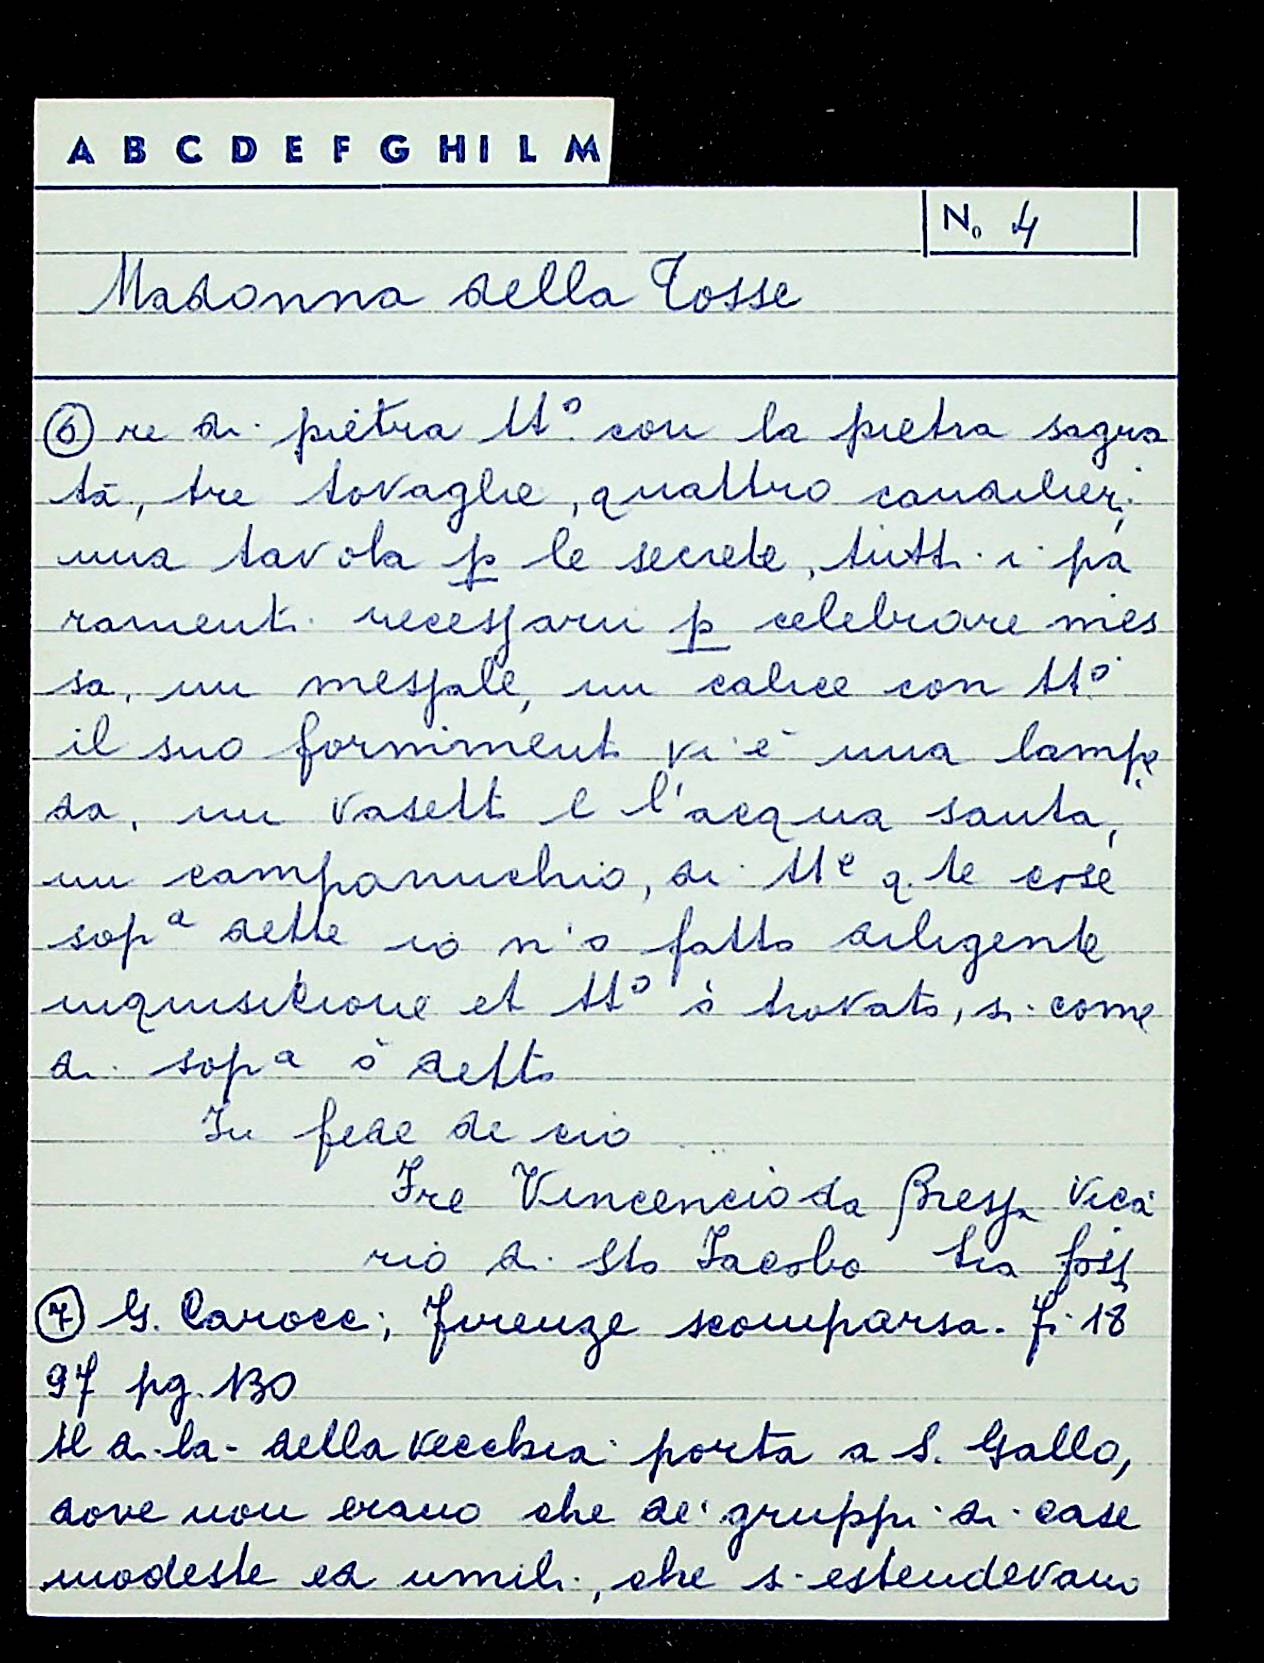 A B C D E F G H I L M
No 4
Madonna della Tosse
⑥ re di pietra tt° con la pietra sagra
ta, tre tovaglie, quattro candilieri,
una tavola p le secrete, tutti i pa
ramenti necessarii p celebrare mes
sa, un messale, un calice con tt°
il suo fornimenti vi è una lampe
da, un vasett e l'acqua santa,
un campanuchio, di tt^e q.te cose
sop^a dette io n'o fatto diligente
inquisitione et tt° ò trovato, si come
di sop^a ò detto
In fede de cio
Fre Vincencio da Bressa Vica
rio di Sto Jacobo tra foss
⑦ G. Carocci; Firenze scomparsa. Fi. 18
97 pg. 130
Al di la della vecchia porta a S. Gallo,
dove non erano che dei gruppi di case
modeste ed umili, che si estendevano